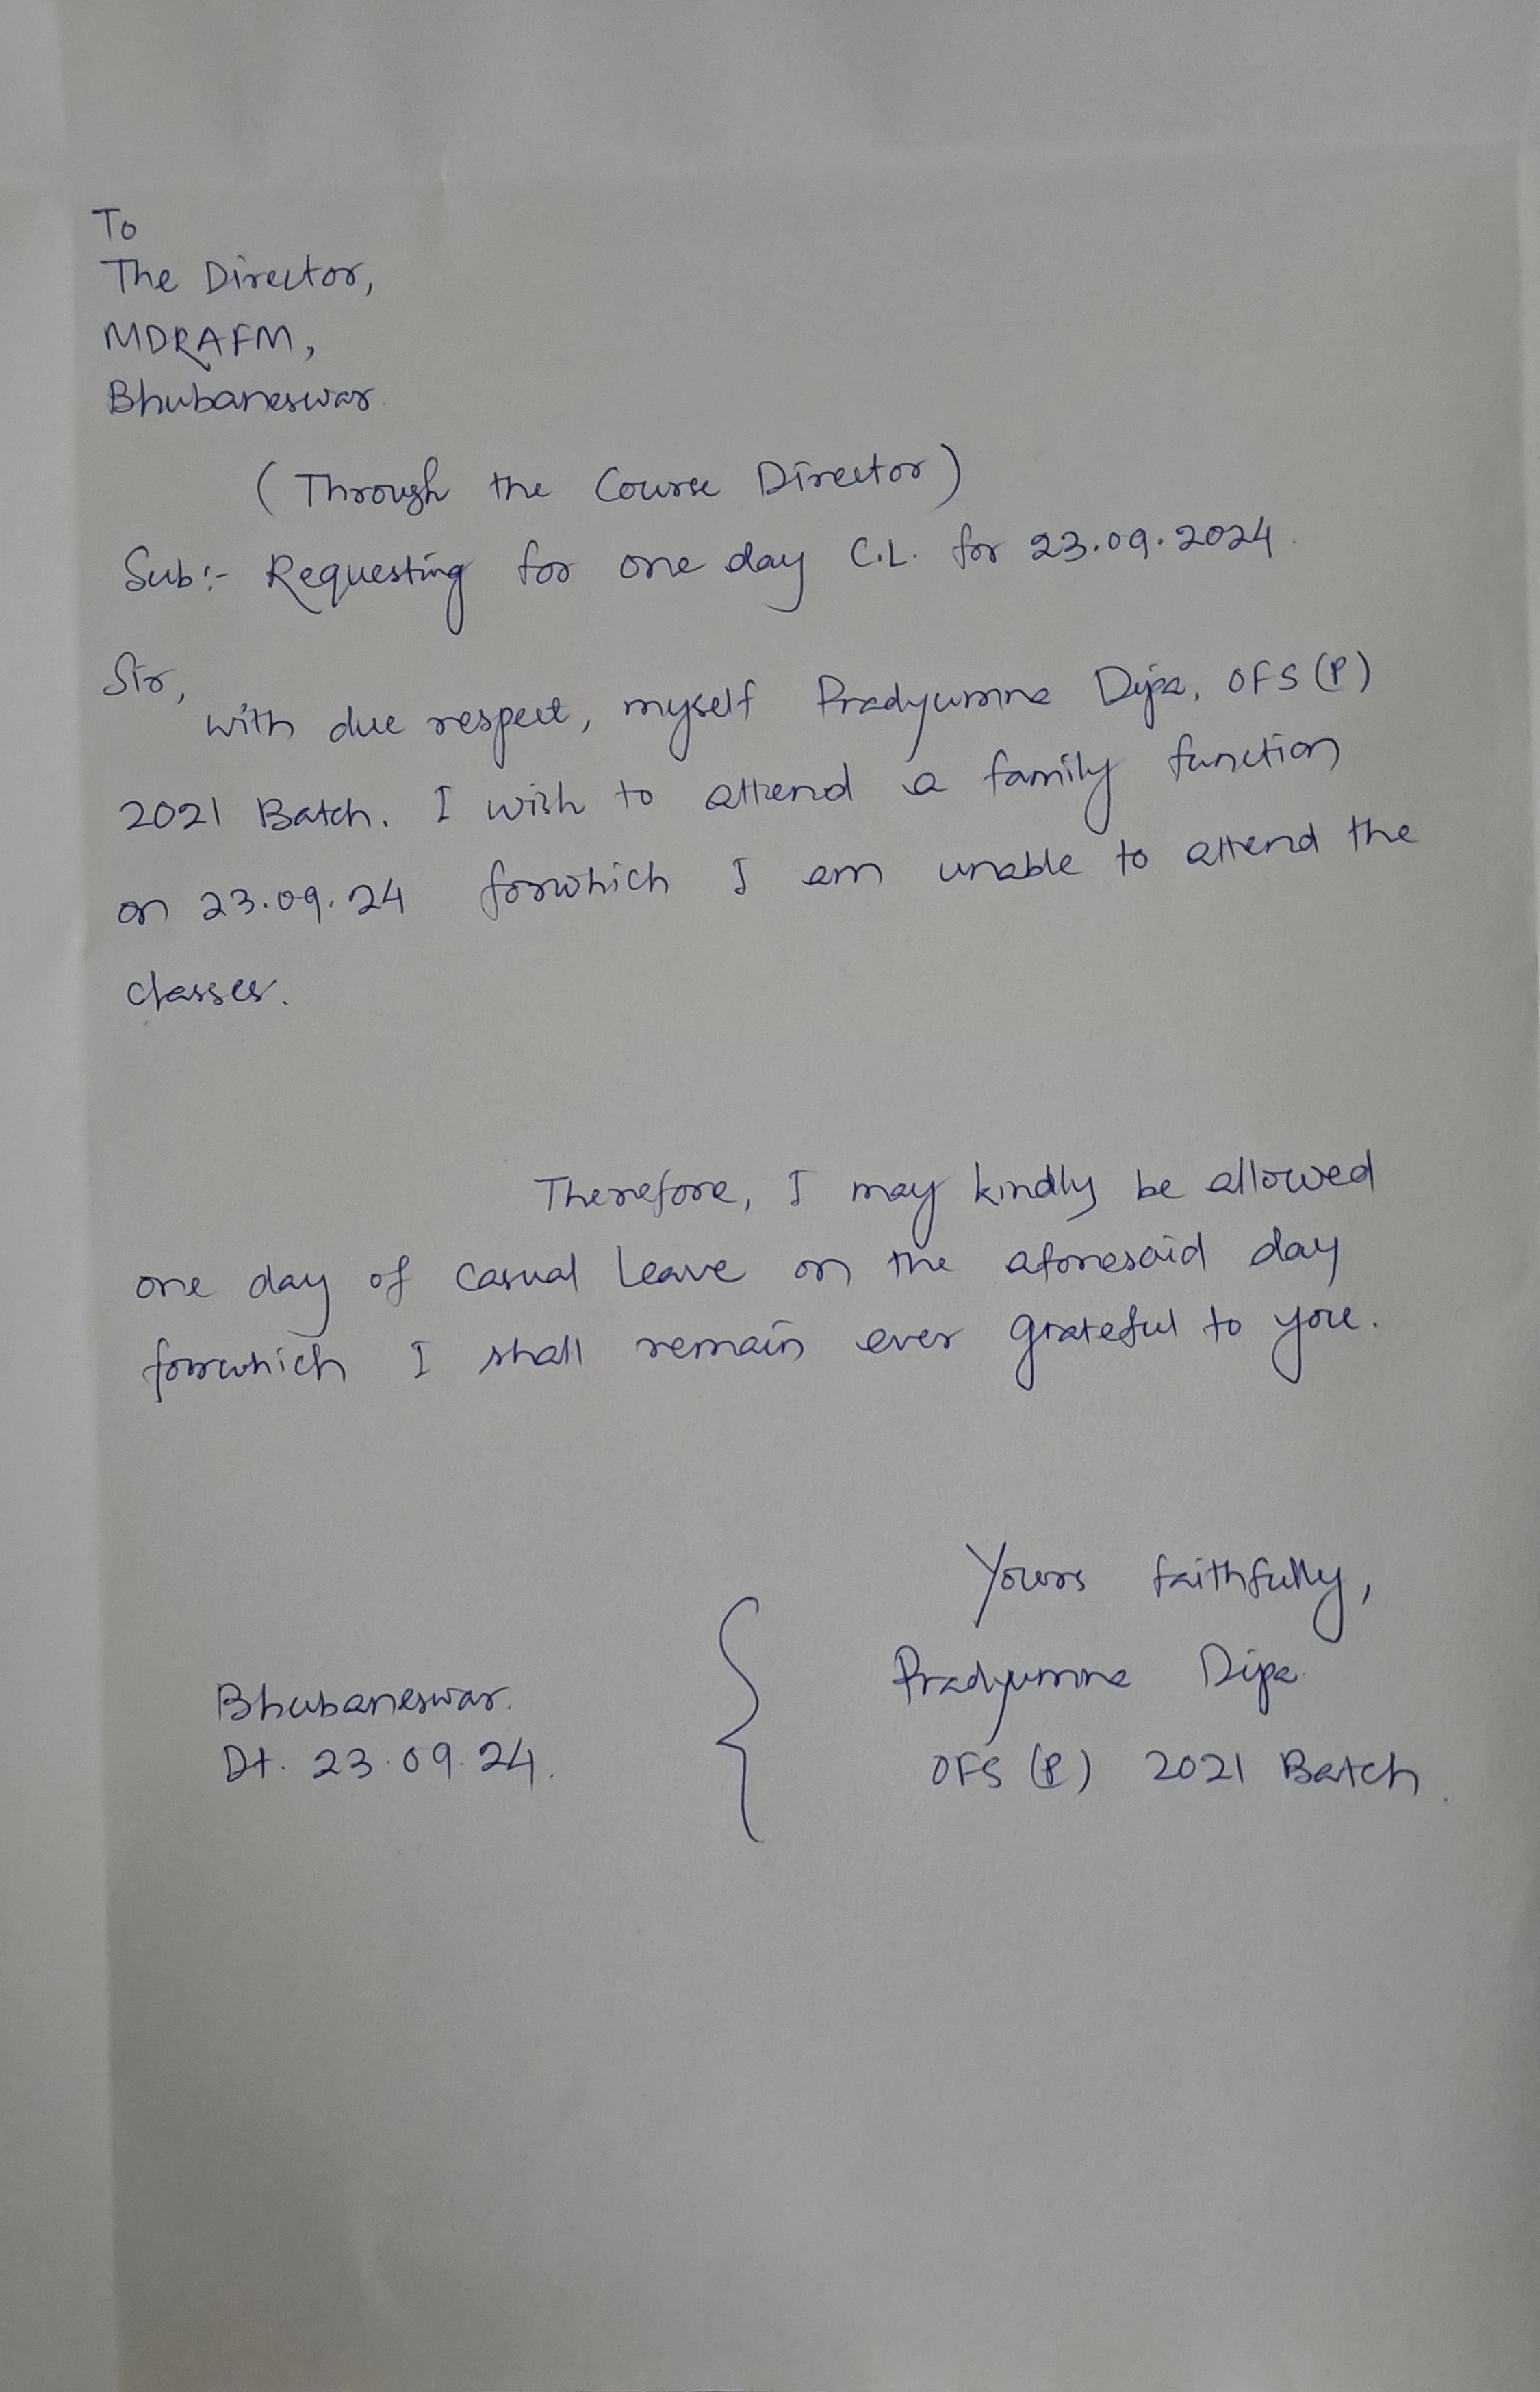 To
The Director,
MDRAFM,
Bhubaneswar.
(Through the Course Director)
Sub:- Requesting for one day C.L. for 23.09.2024.
Sir,
With due respect, myself Pradyumna Dipa, OFS (P)
2021 Batch. I wish to attend a family function
on 23.09.24 forwhich I am unable to attend the
classes.
Therefore, I may kindly be allowed
one day of Casual Leave on the aforesaid day
forwhich I shall remain ever grateful to you.
Yours faithfully,
Pradyumna Dipa
OFS (P) 2021 Batch.
Bhubaneswar.
Dt. 23.09.24.